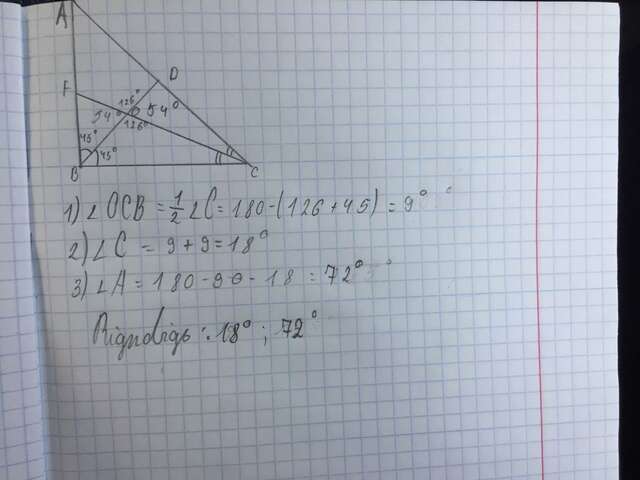 A
D
F
126°
54°
O
54°
126°
45°
45°
B
C
1) ∠OCB = 1/2 ∠C = 180-(126+45) = 9°
2) ∠C = 9+9=18°
3) ∠A = 180-90-18 = 72°
Відповідь: 18°; 72°